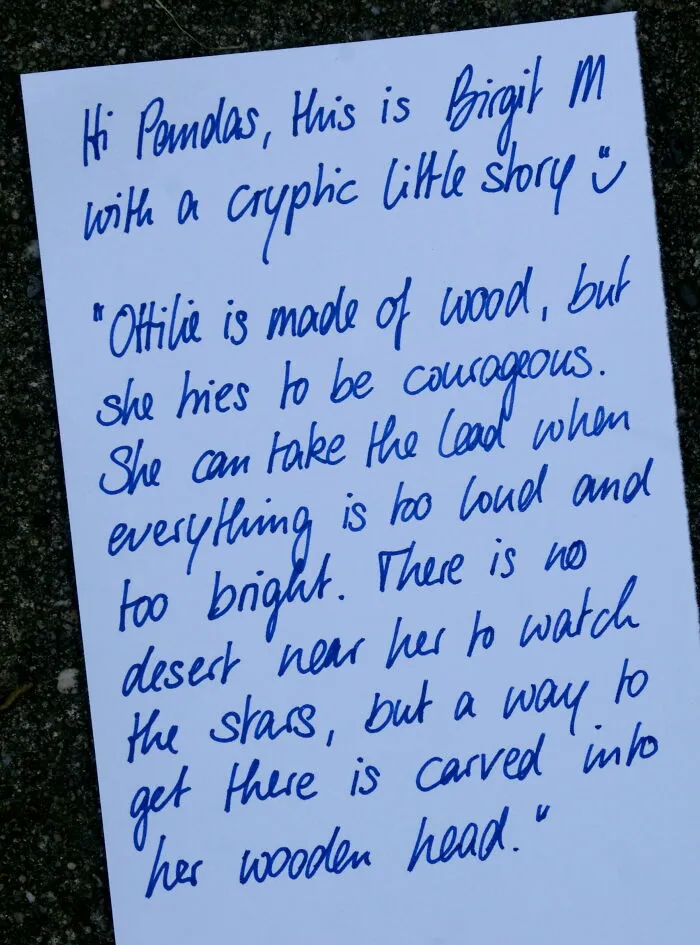 Hi Pandas, this is Birgit M
with a cryptic little story
"Ottilie is made of wood, but
she tries to be courageous.
She can take the lead when
everything is too loud and
too bright. There is no
desert near her to watch
the stars, but a way to
get there is carved into
her wooden head."